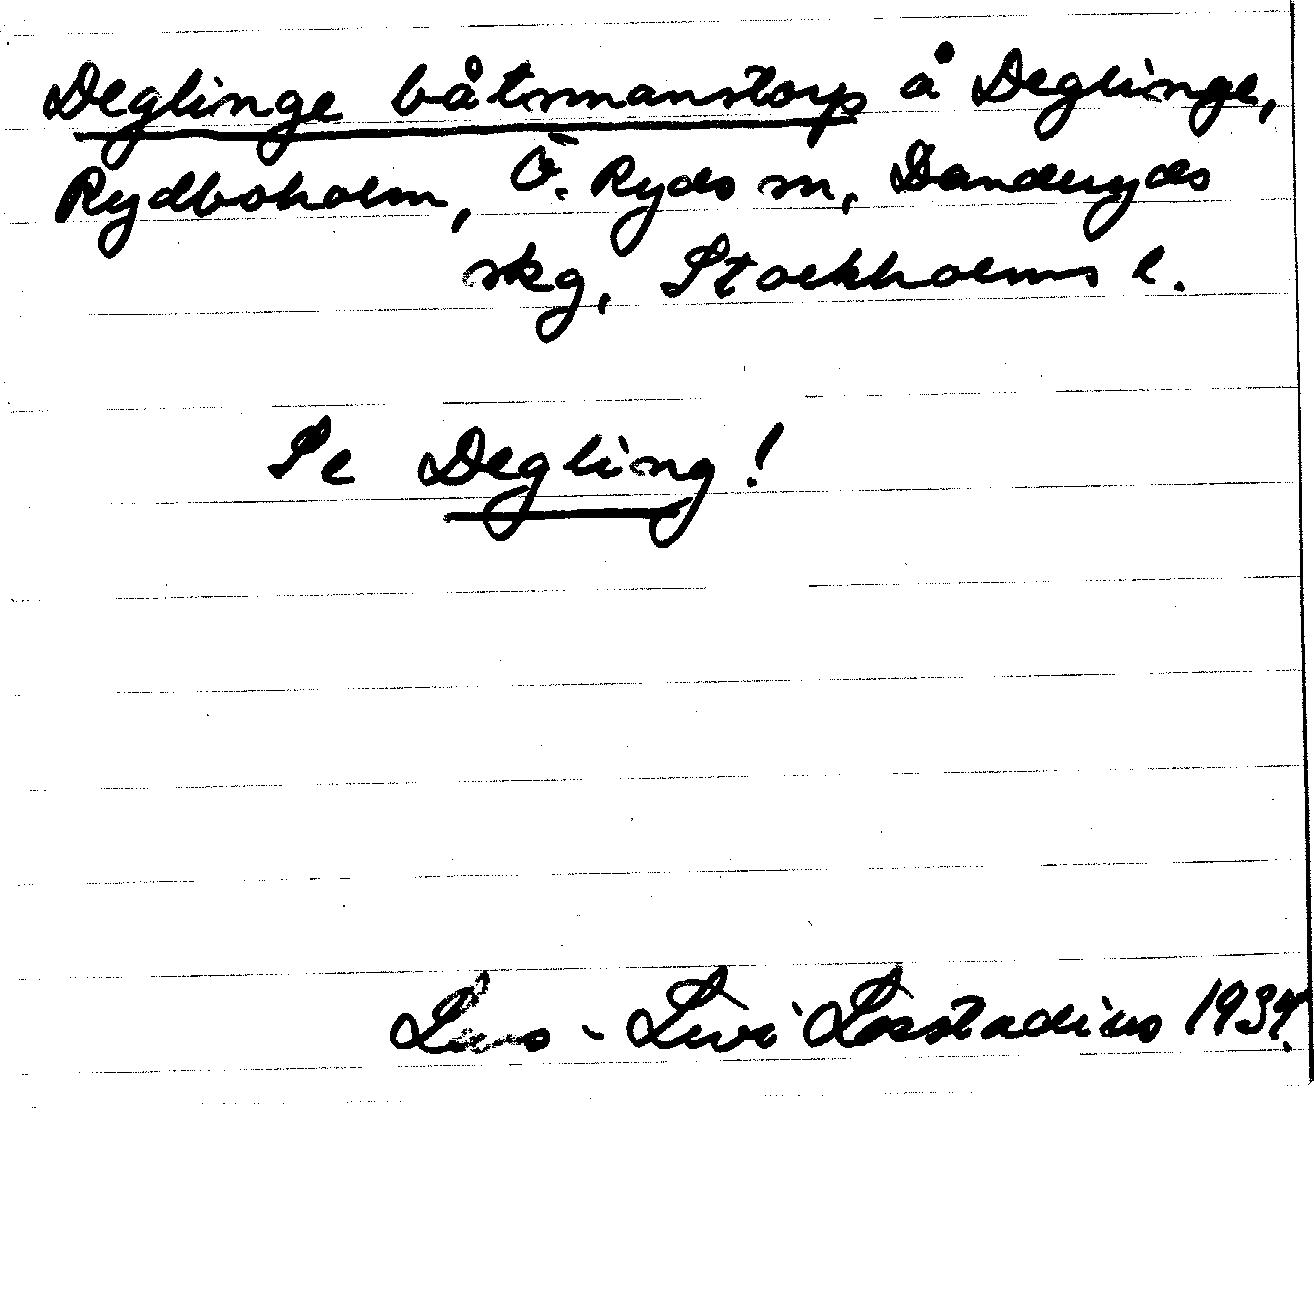 Deglinge båtsmanstorp å Deglinge,
Rydboholm, Ö. Ryds sn, Danderyds
skg, Stockholms l.
Se Degling!
Lars-Levi Læstadius 1934.